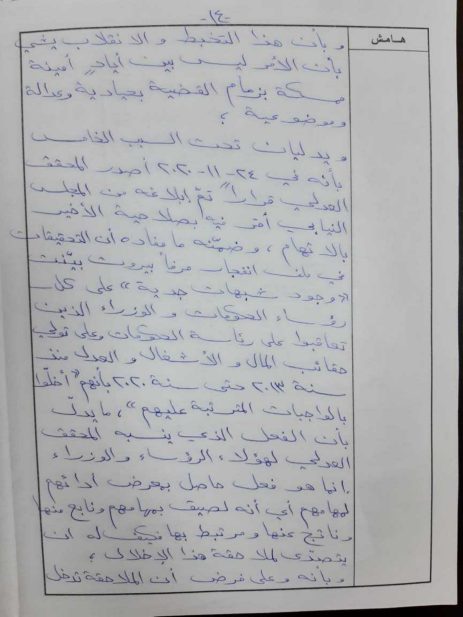 -١٤-
هامش
وبأن هذا التخبط والانقلاب يشي
بأن الأمر ليس بين أيادٍ أمينة
ممسكة بزمام القضية بحيادية وعدالة
وموضوعية ؛
ويدليان تحت السبب الخامس
بأنه في ٢٤-١١-٢٠٢٠ أصدر المحقق
العدلي قراراً تمّ إبلاغه من المجلس
النيابي أقر فيه بصلاحية الأخير
بالاتهام ، وضمّنه ما مفاده أن التحقيقات
في ملف انفجار مرفأ بيروت بيّنت
"وجود شبهات جدية" على كل
رؤساء الحكومات والوزراء الذين
تعاقبوا على رئاسة الحكومات وعلى تولي
حقائب المال والأشغال والعدل منذ
سنة ٢٠١٣ حتى سنة ٢٠٢٠ بأنهم "أخلّوا
بالواجبات المترتبة عليهم" ، ما يدلّ
بأن الفعل الذي ينسبه المحقق
العدلي لهؤلاء الرؤساء والوزراء
إنما هو فعل حاصل بمعرض أدائهم
لمهامهم أي أنه لصيق بمهامهم ونابع منها
وناتج عنها ومرتبط بها فكيف له ان
يتصدّى لملاحقة هذا الإخلال ؛
وبأنه وعلى فرض أن الملاحقة تدخل